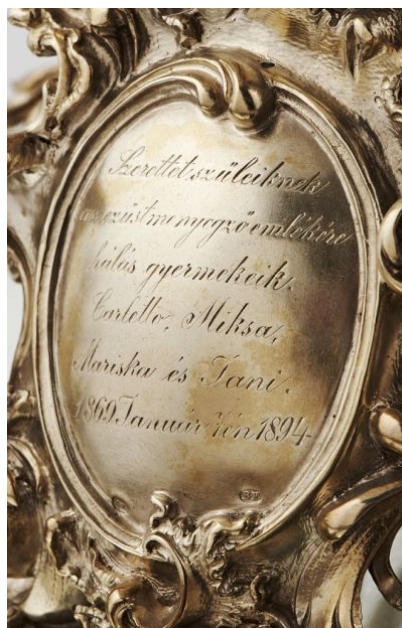 Szerettet szüleiknek
az ezüstmenyegző emlékére
hálás gyermekeik
Carletto, Miksa,
Mariska és Jani.
1869 Január 7én 1894